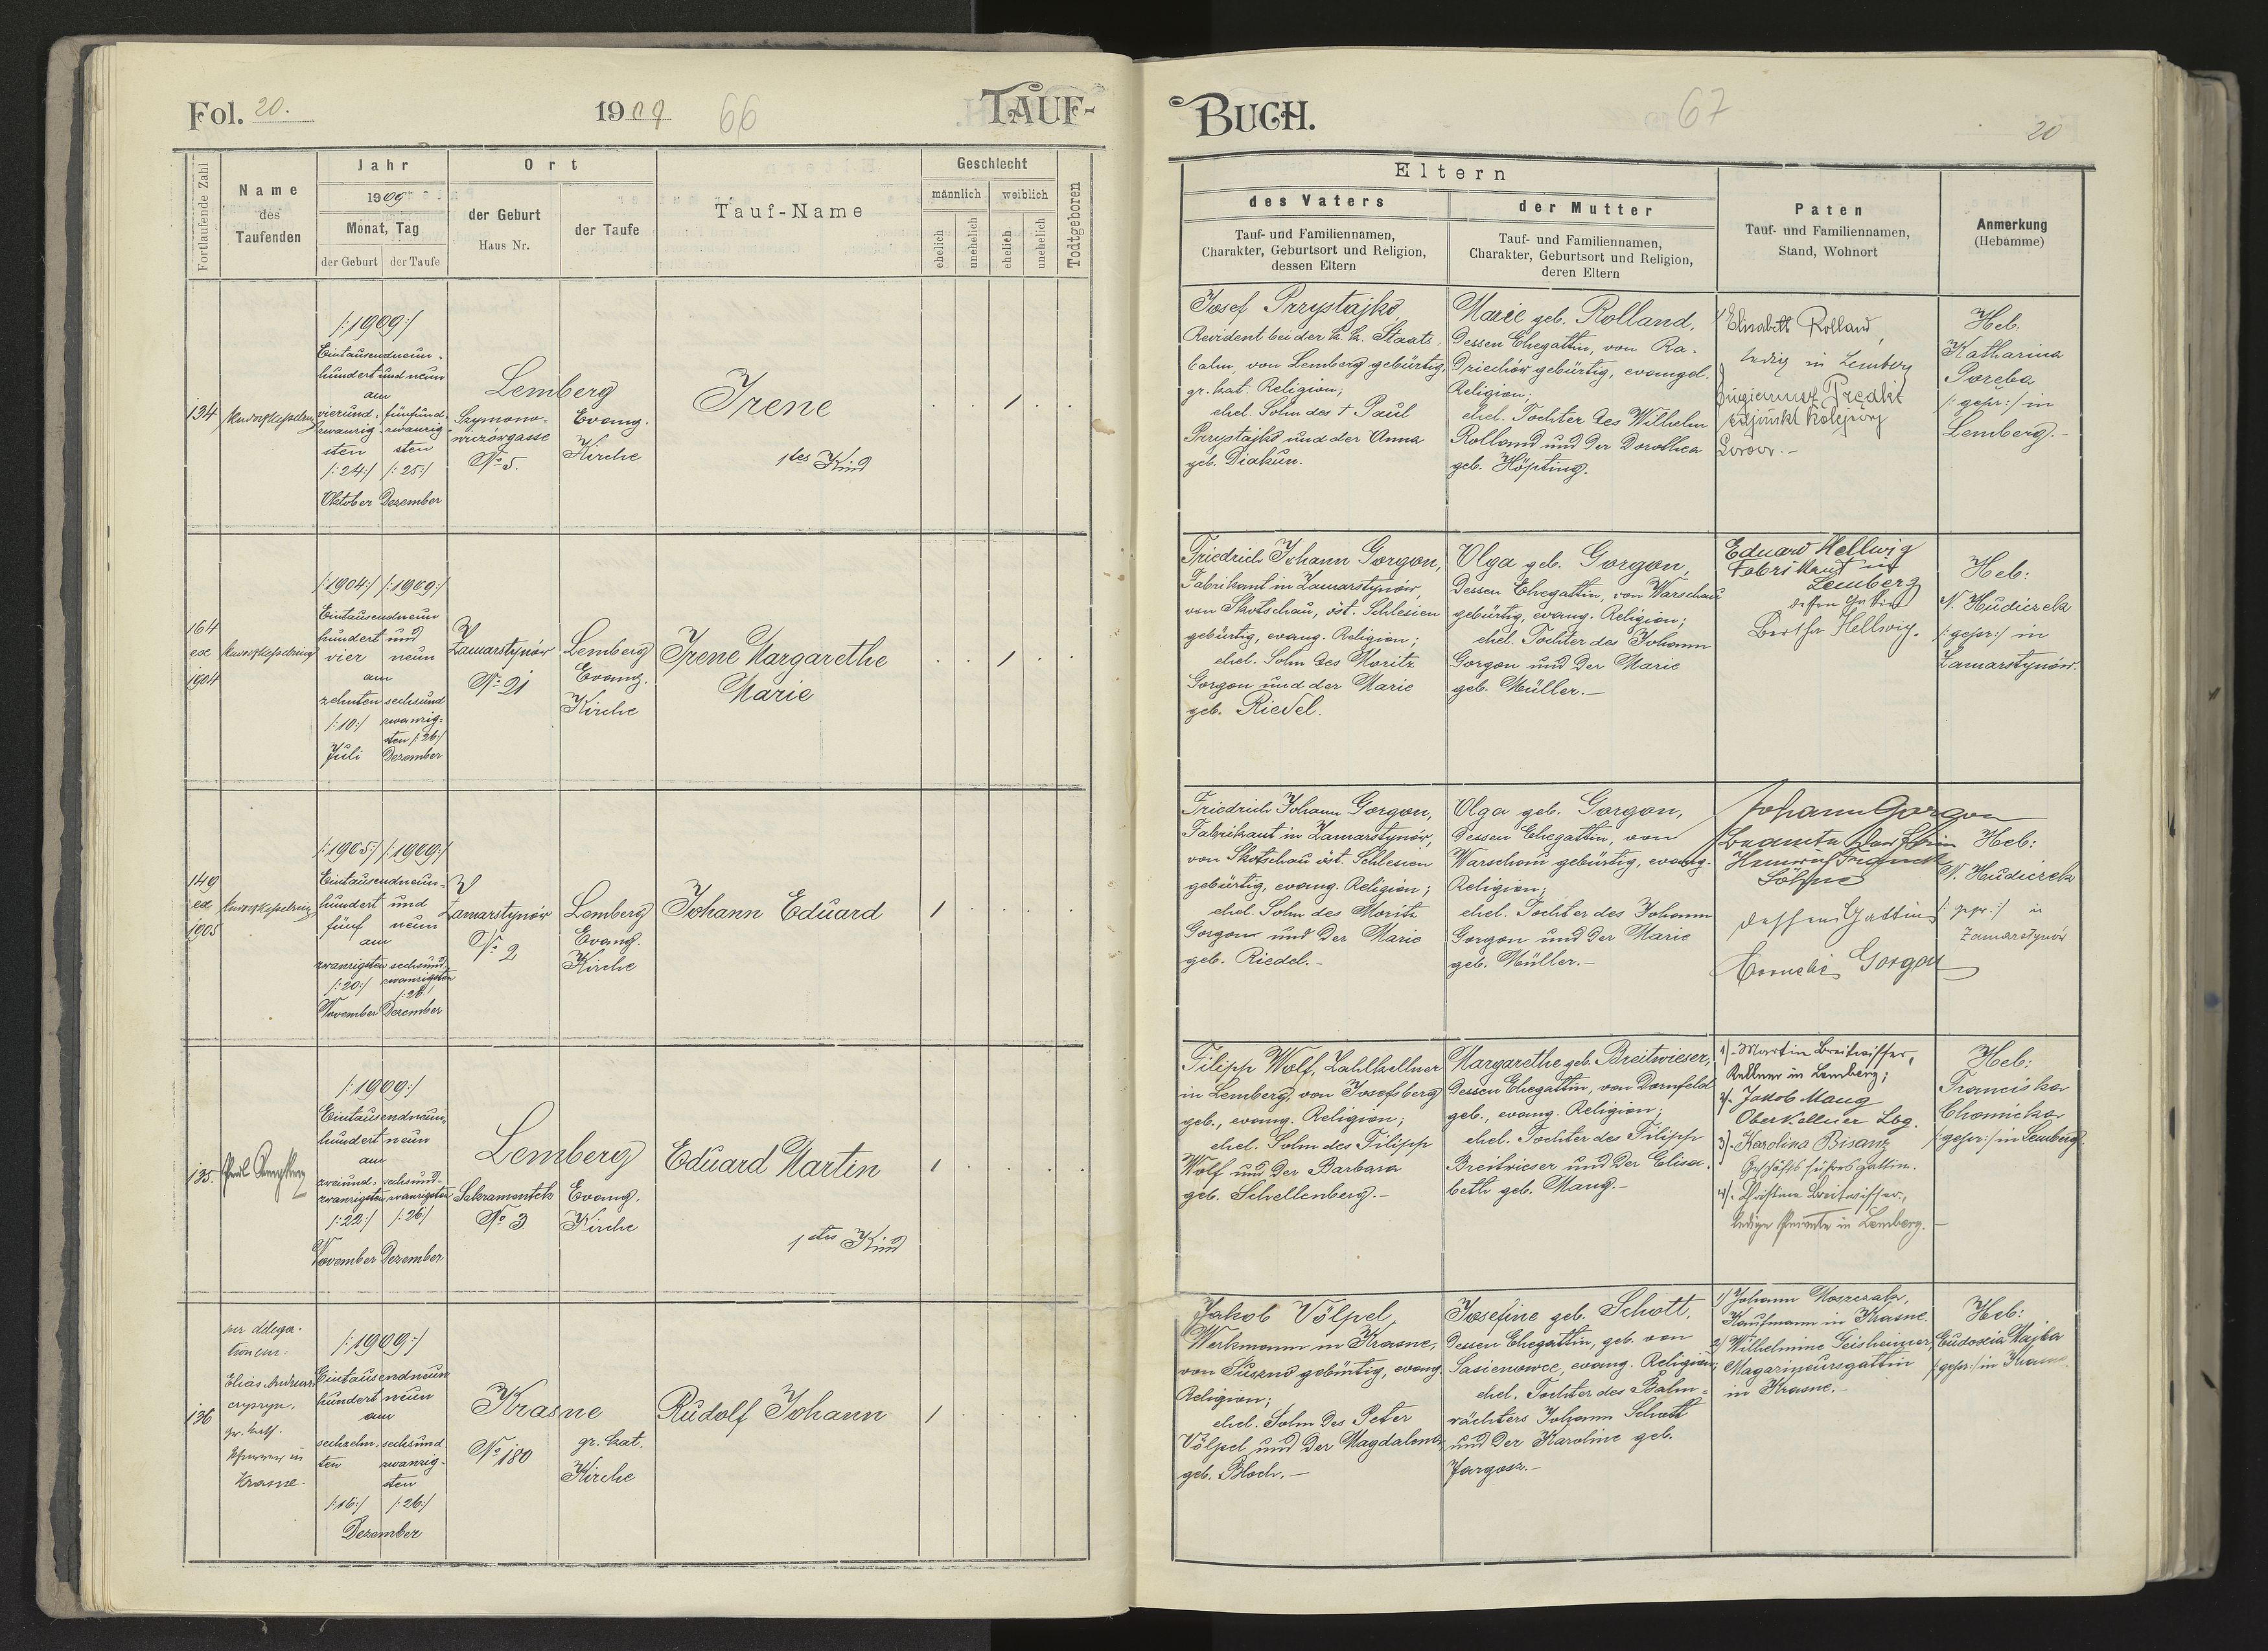 Fol. 20.
1909
66
TAUF-
Fortlaufende Zahl
Name
des
Taufenden
Jahr
1909
Monat, Tag
der Geburt
der Taufe
Ort
der Geburt
Haus Nr.
der Taufe
Tauf-Name
Geschlecht
männlich
weiblich
ehelich
unehelich
ehelich
unehelich
Todtgeboren
134
/:1909:/
Eintausendneun-
hundert und neun
am
vierund- fünfund-
zwanzig- zwanzig-
sten sten
/:24:/ /:25:/
Oktober Dezember
Lemberg
Szymono-
wiczówgasse
No 5.
Evang.
Kirche
Irene
1tes Kind
1
164
ex
1904
/:1904:/ /:1909:/
Eintausendneun
hundert und
vier neun
am
zehnten sechsund
/:10:/ zwanzig-
sten /:26:/
Juli Dezember
Zamarstynów
No 21
Lemberg
Evang.
Kirche
Irene Margarethe
Marie
1
149
ex
1905
/:1905:/ /:1909:/
Eintausendneun-
hundert und
fünf neun
am
zwanzigsten sechsund
/:20:/ zwanzigsten
/:26:/
November Dezember
Zamarstynów
No 2
Lemberg
Evang.
Kirche
Johann Eduard
1
135.
/:1909:/
Eintausendneun-
hundert neun
am
zweiund- sechsund-
zwanzigsten zwanzigsten
/:22:/ /:26:/
November Dezember
Lemberg
Sakramentek
No 3
Evang.
Kirche
Eduard Martin
1tes Kind
1
136
per delega-
tionem:
Elias
gr. kath.
Pfarrer in
Krasne
/:1909:/
Eintausendneun
hundert neun
am
sechzehn- sechsund
ten zwanzig-
sten
/:16:/ /:26:/
Dezember
Krasne
No 180
gr. kat.
Kirche
Rudolf Johann
1
BUCH.
67
20
Eltern
des Vaters
Tauf- und Familiennamen,
Charakter, Geburtsort und Religion,
dessen Eltern
der Mutter
Tauf- und Familiennamen,
Charakter, Geburtsort und Religion,
deren Eltern
Paten
Tauf- und Familiennamen,
Stand, Wohnort
Anmerkung
(Hebamme)
Josef Przystajko,
Revident bei der k. k. Staats-
bahn, von Lemberg gebürtig,
gr. kat. Religion;
ehel. Sohn des † Paul
Przystajko und der Anna
geb. Diakun.
Marie geb. Rolland,
dessen Ehegattin, von Ra-
dziechów gebürtig, evangel.
Religion;
ehel. Tochter des Wilhelm
Rolland und der Dorothea
geb. Höpting.
Elisabeth Rolland,
ledig in Lemberg
adjunkt kolejowy
Lwow.-
Heb:
Katharina
Poreba
/:gepr:/ in
Lemberg.-
Friedrich Johann Gorgon,
Fabrikant in Zamarstynów,
von Skotschau, öst. Schlesien
gebürtig, evang. Religion;
ehel. Sohn des Moritz
Gorgon und der Marie
geb. Riedel.
Olga geb. Gorgon,
dessen Ehegattin, von Warschau
gebürtig, evang. Religion;
ehel. Tochter des Johann
Gorgon und der Marie
geb. Müller.-
Eduard Hellwig
Fabrikant in
Lemberg
dessen Gattin
Bertha Hellwig.
Heb:
N. Hudiczek
/:gepr:/ in
Zamarstynów.
Friedrich Johann Gorgon,
Fabrikant in Zamarstynów,
von Skotschau öst. Schlesien
gebürtig, evang. Religion;
ehel. Sohn des Moritz
Gorgon und der Marie
geb. Riedel.-
Olga geb. Gorgon,
dessen Ehegattin, von
Warschau gebürtig, evang.
Religion;
ehel. Tochter des Johann
Gorgon und der Marie
geb. Müller.-
Johann Gorgon
Beamter der Firma
Heinrich Franck
Söhne
dessen Gattin
Cornelie Gorgon
Heb:
N. Hudiczek
/:gepr:/ in
Zamarstynów
Filipp Wolf, Zahlkellner
in Lemberg, von Josefsberg
geb., evang. Religion;
ehel. Sohn des Filipp
Wolf und der Barbara
geb. Schellenberg.-
Margarethe geb. Breitwieser,
dessen Ehegattin, von Dornfeld
geb., evang. Religion;
ehel. Tochter des Filipp
Breitwieser und der Elisa-
beth geb. Mang.-
1). Martin Breitwisser,
Kellner in Lemberg;
2. Jakob Mang
Oberkellner Lbg.
3). Karolina Bisanz
Geschäftsführersgattin.
4). Christine Breitwisser,
ledige Private in Lemberg.-
Heb:
Franciska
Chomicka
/:gepr:/ in Lemberg.
Jakob Völpel,
Werkmann in Krasne,
von Suszno gebürtig, evang.
Religion;
ehel. Sohn des Peter
Völpel und der Magdalena
geb. Bloch.-
Josefine geb. Schott,
dessen Ehegattin, geb. von
Sasienowce, evang. Religion;
ehel. Tochter des Bahn-
wächters Johann Schott
und der Karoline geb.
Jargosz.-
1) Johann Moszczak,
Kaufmann in Krasne.
2) Wilhelmine Geisheimer
Magazineursgattin
in Krasne.-
Heb:
Eudoxia Kajka
/:gepr:/ in Krasne.